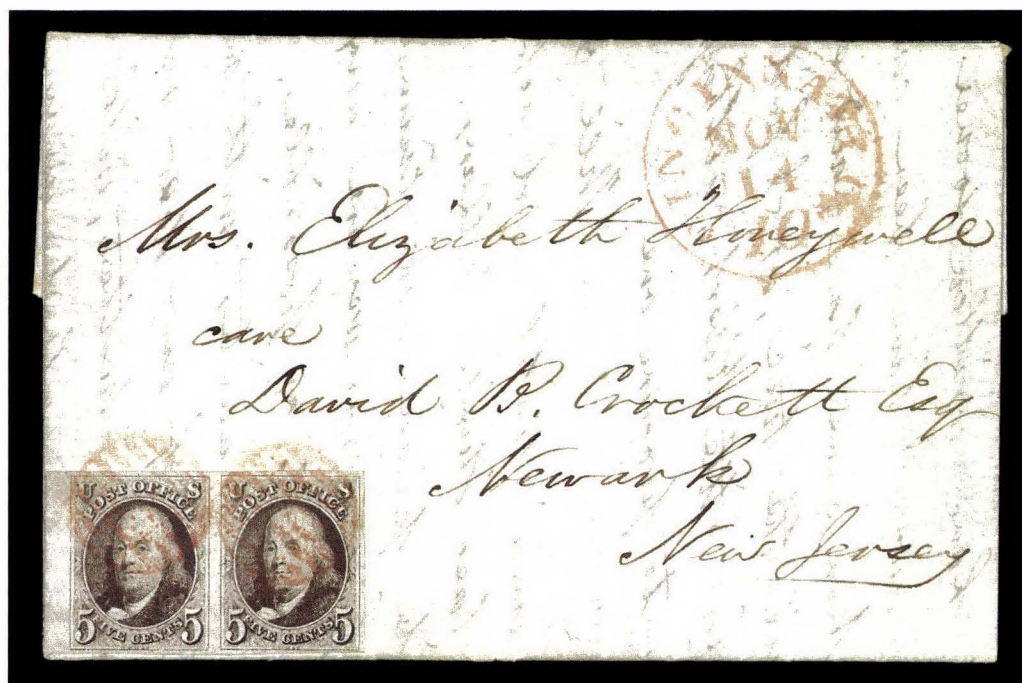 NOV
14
10
Mrs. Elizabeth Honeywell
care
David B. Crockett Esq
Newark
New Jersey
U S
POST OFFICE
5 FIVE CENTS 5
U S
POST OFFICE
5 FIVE CENTS 5